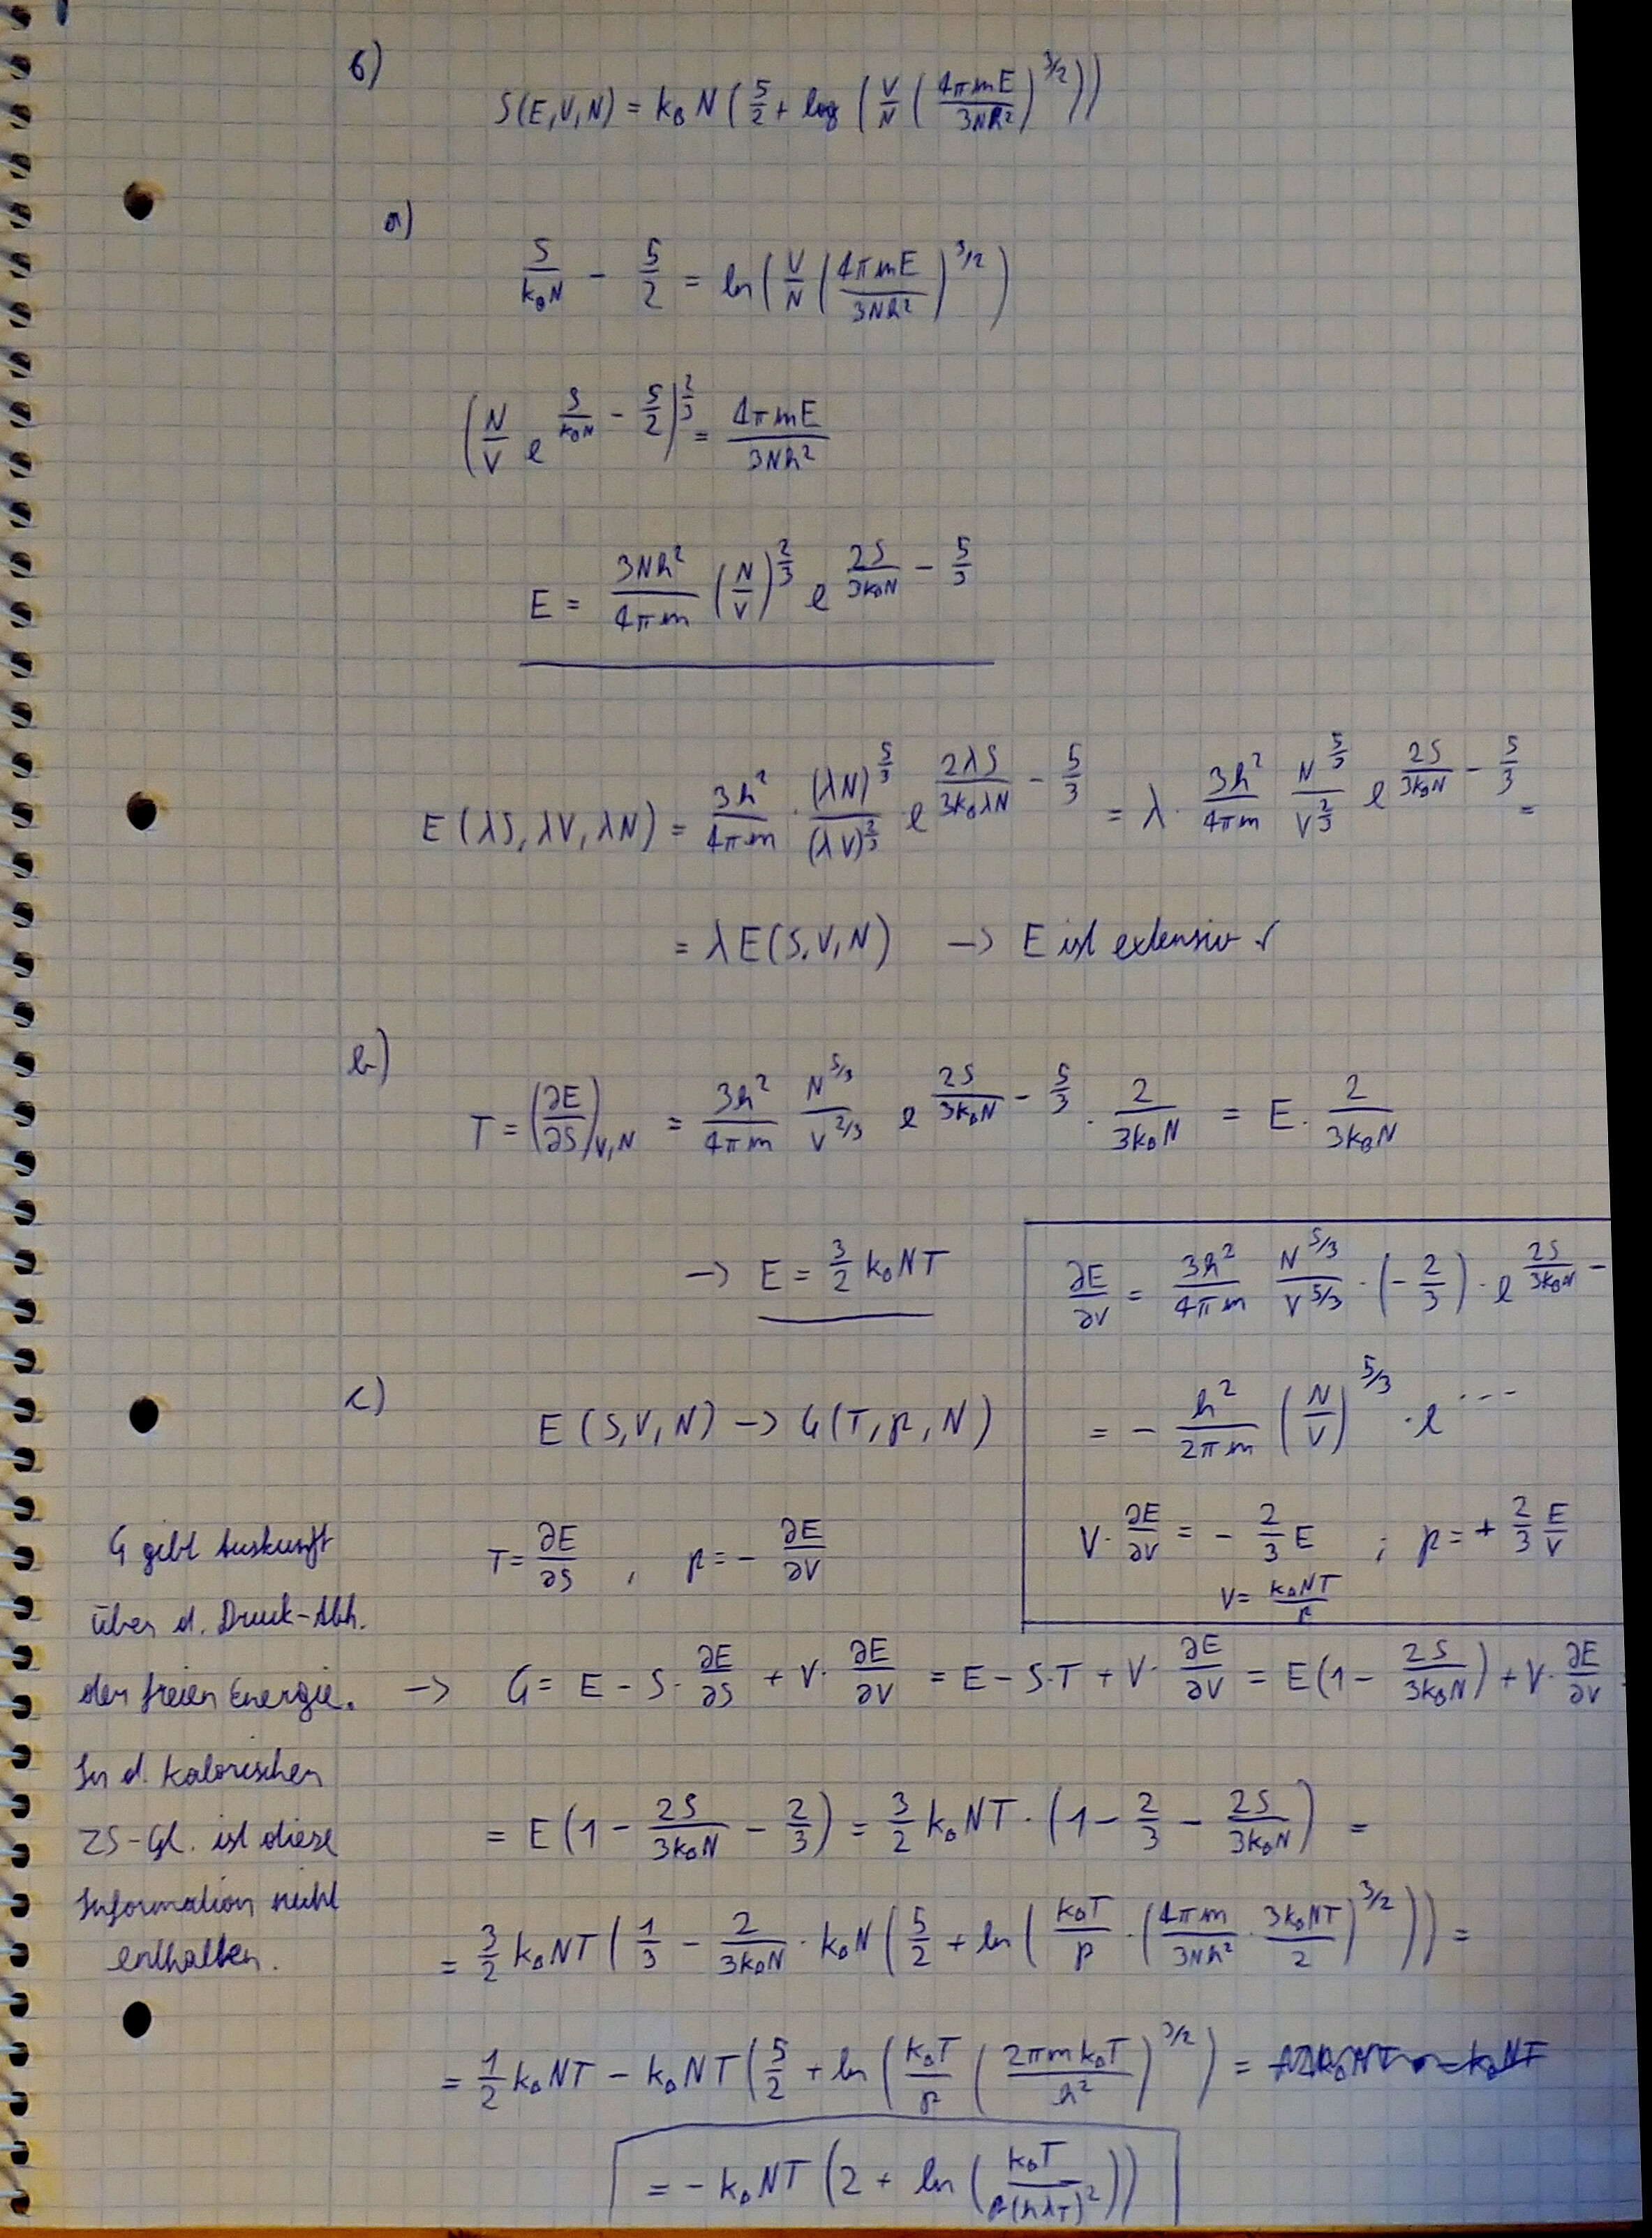 6)
S(E,V,N) = k_B N ( 5/2 + log ( V/N ( 4πmE / 3Nh² )^{3/2} ) )
a)
S/(k_B N) - 5/2 = ln ( V/N ( 4πmE / 3Nh² )^{3/2} )
( N/V e^{S/(k_B N) - 5/2} )^{2/3} = 4πmE / 3Nh²
E = 3Nh²/4πm (N/V)^{2/3} e^{2S/(3k_B N) - 5/3}
E(λS, λV, λN) = 3h²/4πm · (λN)^{5/3}/(λV)^{2/3} e^{2λS/(3k_B λN) - 5/3} = λ · 3h²/4πm N^{5/3}/V^{2/3} e^{2S/(3k_B N) - 5/3} =
= λE(S,V,N) → E ist extensiv ✓
b)
T = (∂E/∂S)_{V,N} = 3h²/4πm N^{5/3}/V^{2/3} e^{2S/(3k_B N) - 5/3} · 2/(3k_B N) = E · 2/(3k_B N)
→ E = 3/2 k_B NT
∂E/∂V = 3h²/4πm N^{5/3}/V^{5/3} · (-2/3) · e^{2S/(3k_B N) -
= - h²/2πm (N/V)^{5/3} · e^{...}
V · ∂E/∂V = - 2/3 E ; p = + 2/3 E/V
V = k_B NT/p
c)
E(S,V,N) → G(T,p,N)
T = ∂E/∂S , p = - ∂E/∂V
G gibt Auskunft
über d. Druck-Abh.
der freien Energie.
In d. kalorischen
ZS-Gl. ist diese
Information nicht
enthalten.
→ G = E - S · ∂E/∂S + V · ∂E/∂V = E - S·T + V · ∂E/∂V = E(1 - 2S/(3k_B N)) + V · ∂E/∂V =
= E(1 - 2S/(3k_B N) - 2/3) = 3/2 k_B NT · (1 - 2/3 - 2S/(3k_B N)) =
= 3/2 k_B NT ( 1/3 - 2/(3k_B N) · k_B N ( 5/2 + ln ( k_B T/p · ( 4πm/3Nh² · 3k_B NT/2 )^{3/2} ) ) =
= 1/2 k_B NT - k_B NT ( 5/2 + ln ( k_B T/p ( 2πm k_B T / h² )^{3/2} ) =
= - k_B NT ( 2 + ln ( k_B T /